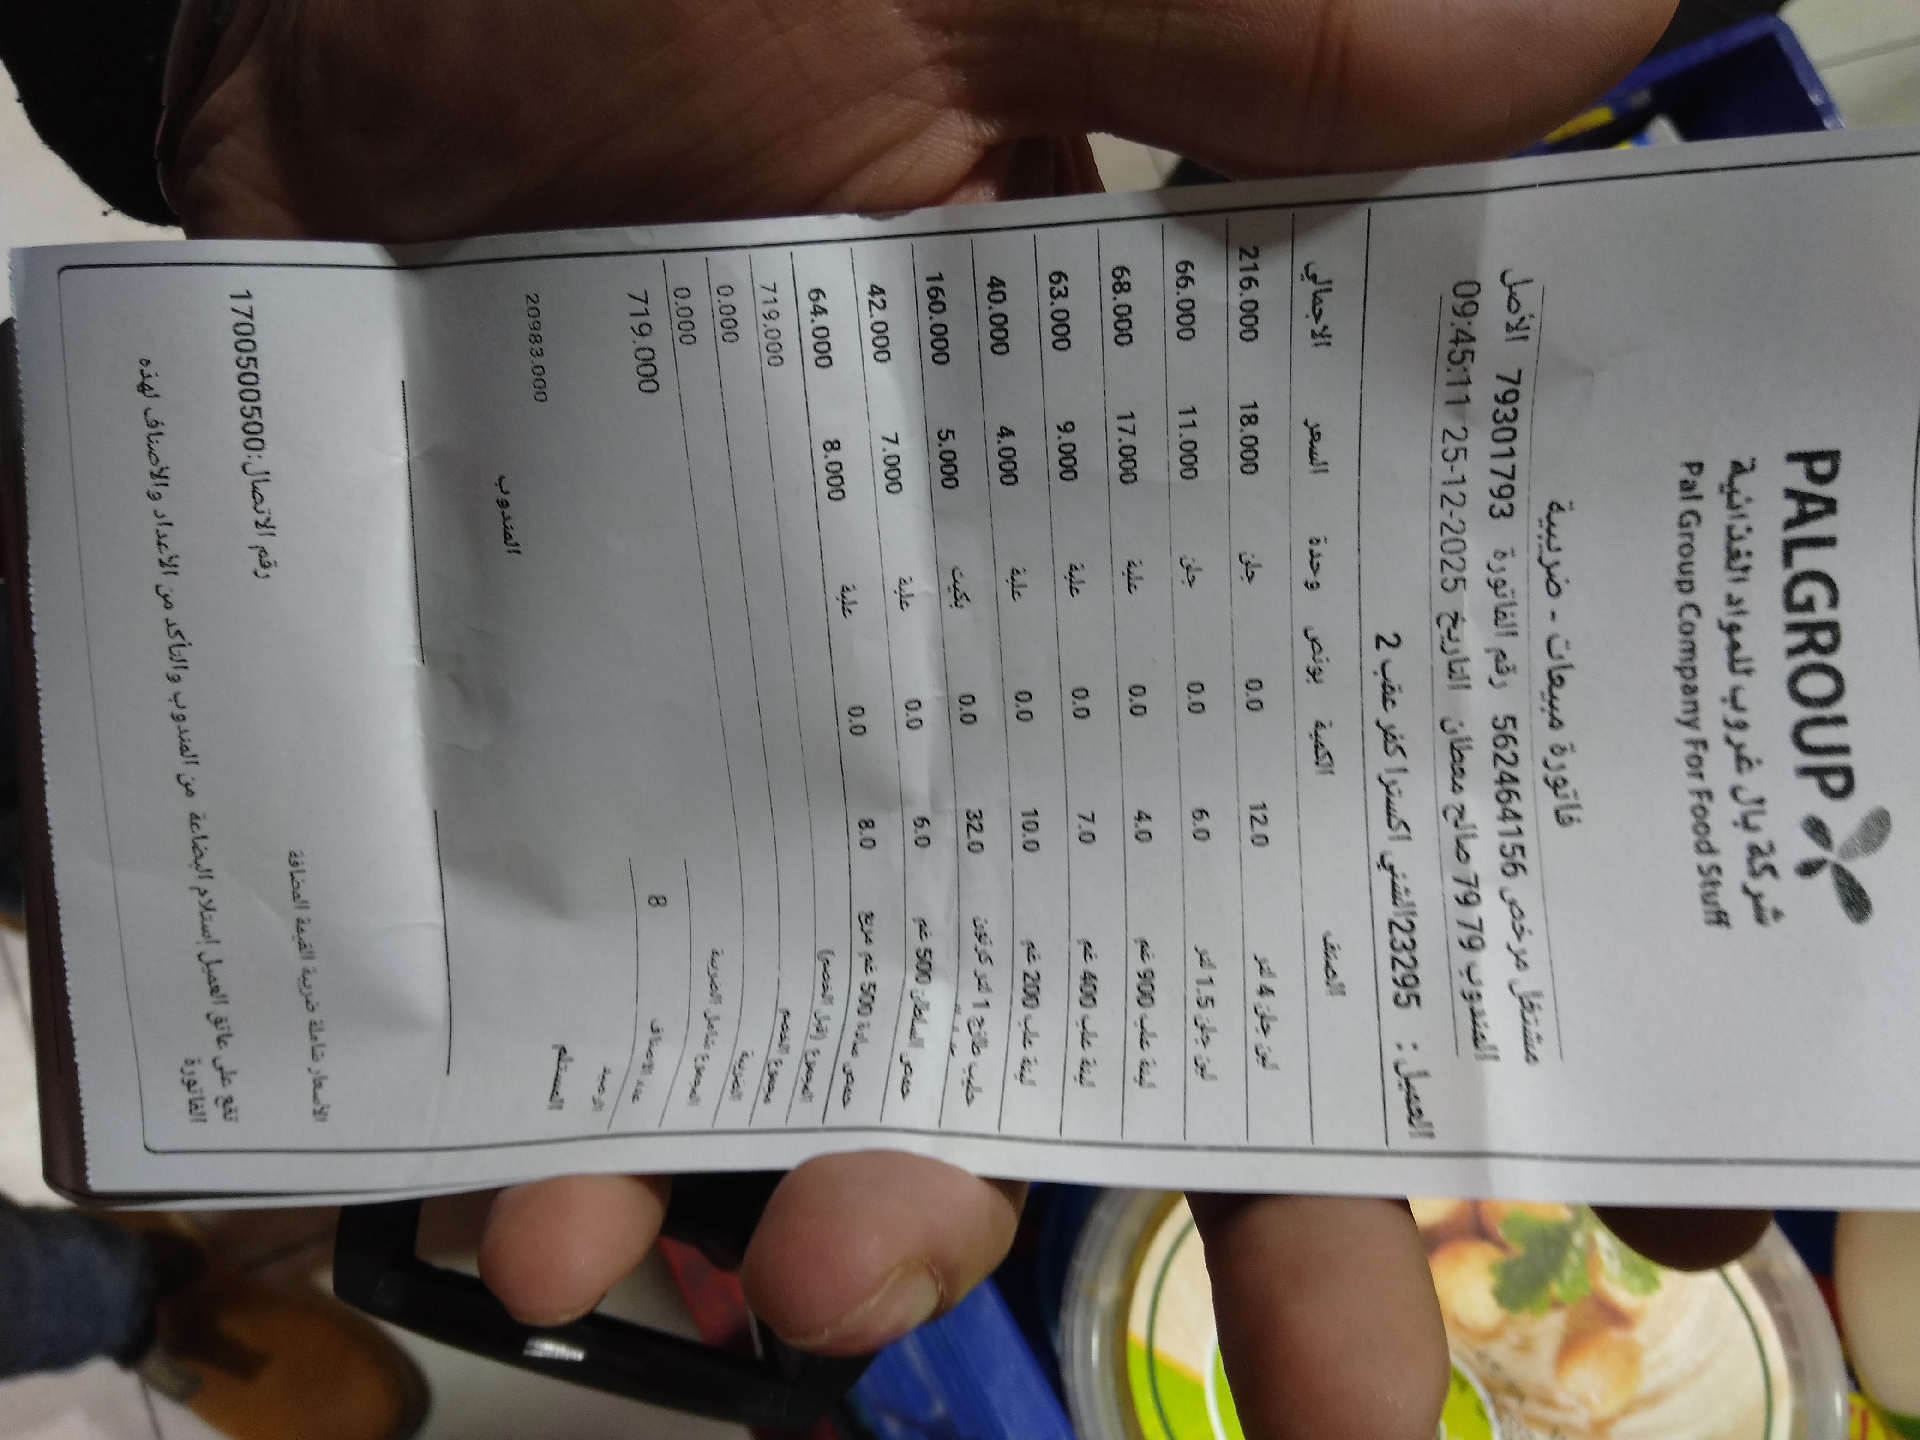 PALGROUP
شركة بال غروب للمواد الغذائية
Pal Group Company For Food Stuff
فاتورة مبيعات - ضريبية
مشتغل مرخص 562464156 رقم الفاتورة 79301793 الأصل
المندوب 79 79 صالح معطان التاريخ 25-12-2025 09:45:11
العميل : 23295الشني اكسترا كفر عقب 2
الصنف الكمية بونص وحدة السعر الاجمالي
لبن جلن 4 لتر 12.0 0.0 جلن 18.000 216.000
لبن جلن 1.5 لتر 6.0 0.0 جلن 11.000 66.000
لبنة علب 900 غم 4.0 0.0 علبة 17.000 68.000
لبنة علب 400 غم 7.0 0.0 علبة 9.000 63.000
لبنة علب 200 غم 10.0 0.0 علبة 4.000 40.000
حليب طازج 1 لتر كرتون 32.0 0.0 بكيت 5.000 160.000
حمص السلطان 500 غم 6.0 0.0 علبة 7.000 42.000
حمص سادة 500 غم مربع 8.0 0.0 علبة 8.000 64.000
المجموع (قبل الخصم) 719.000
مجموع الخصم 0.000
الضريبة 0.000
المجموع شامل الضريبة 719.000
عدد الاصناف 8
الرصيد 20983.000
المستلم المندوب
الاسعار شاملة ضريبة القيمة المضافة
رقم الاتصال:1700500500
تقع على عاتق العميل إستلام البضاعة من المندوب والتأكد من الأعداد والاصناف لهذه
الفاتورة